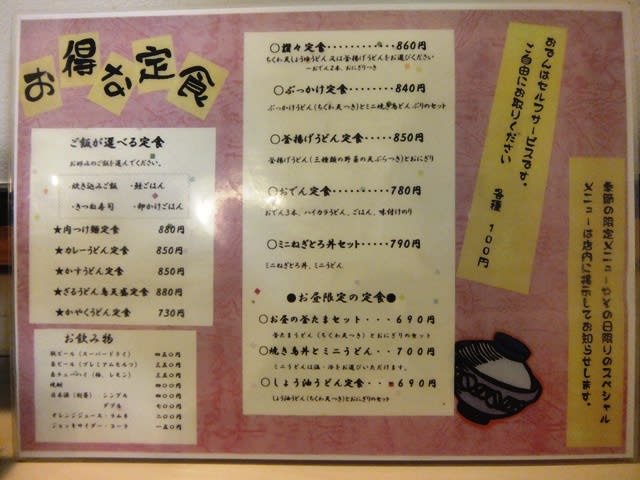 お得な定食
ご飯が選べる定食
お好みのご飯を選んでください。
・炊き込みご飯 ・鮭ごはん
・きつね寿司 ・卵かけごはん
★肉つけ麺定食 880円
★カレーうどん定食 850円
★かすうどん定食 850円
★ざるうどん鳥天盛定食 880円
★かやくうどん定食 730円
お飲み物
瓶ビール(スーパードライ) 四五〇円
生ビール(プレミアムモルツ) 三五〇円
生チューハイ(梅、レモン) 三五〇円
焼酎 四〇〇円
日本酒(剣菱) シングル 四〇〇円
ダブル 七〇〇円
オレンジジュース・ラムネ 二〇〇円
ジョッキサイダー・コーラ 一五〇円
○讃々定食・・・・・860円
ちくわ天しょうゆうどん 又は釜揚げうどんをお選びください
～おでん2本、おにぎりつき
○ぶっかけ定食・・・・840円
ぶっかけうどん(ちくわ天つき)とミニ焼き鳥どんぶりのセット
○釜揚げうどん定食・・・850円
釜揚げうどん(三種類の野菜の天ぷらつき)とおにぎり
○おでん定食・・・・・780円
おでん3本、ハイカラうどん、ごはん、味付けのり
○ミニねぎとろ丼セット・・・・・790円
ミニねぎとろ丼、ミニうどん
●お昼限定の定食●
○お昼の釜たまセット・・・690円
釜たまうどん(ちくわ天つき)とおにぎりのセット
○焼き鳥丼とミニうどん・・700円
ミニうどんは温・冷をお選びいただけます。
○しょう油うどん定食・・・690円
しょうゆうどん(ちくわ天つき)とおにぎりのセット
おでんはセルフサービスです。
ご自由にお取りください
各種 100円
季節の限定メニューやその日限りのスペシャル
メニューは店内に掲示してお知らせします。